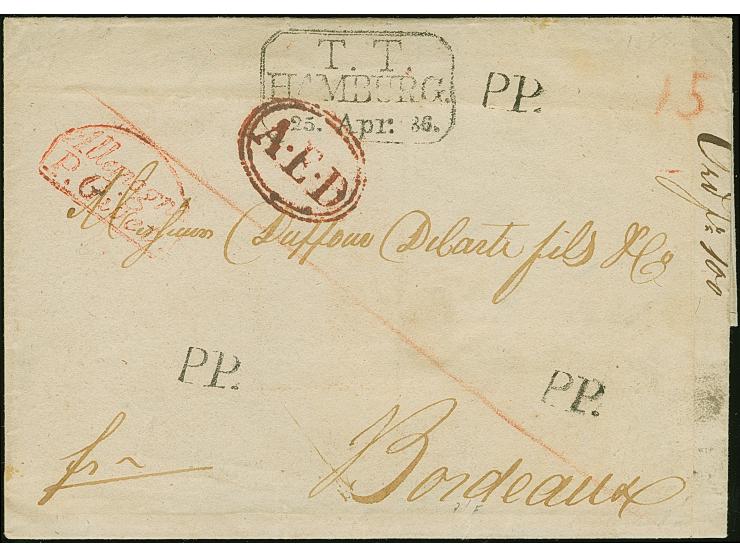 T. T.
HAMBURG.
25. Apr: 36.
PP.
15
A.E.D
Allemagne
P. Givet
Messieurs Duffour Dubarte fils & Co
PP.
PP.
fro
Bordeaux
No 100